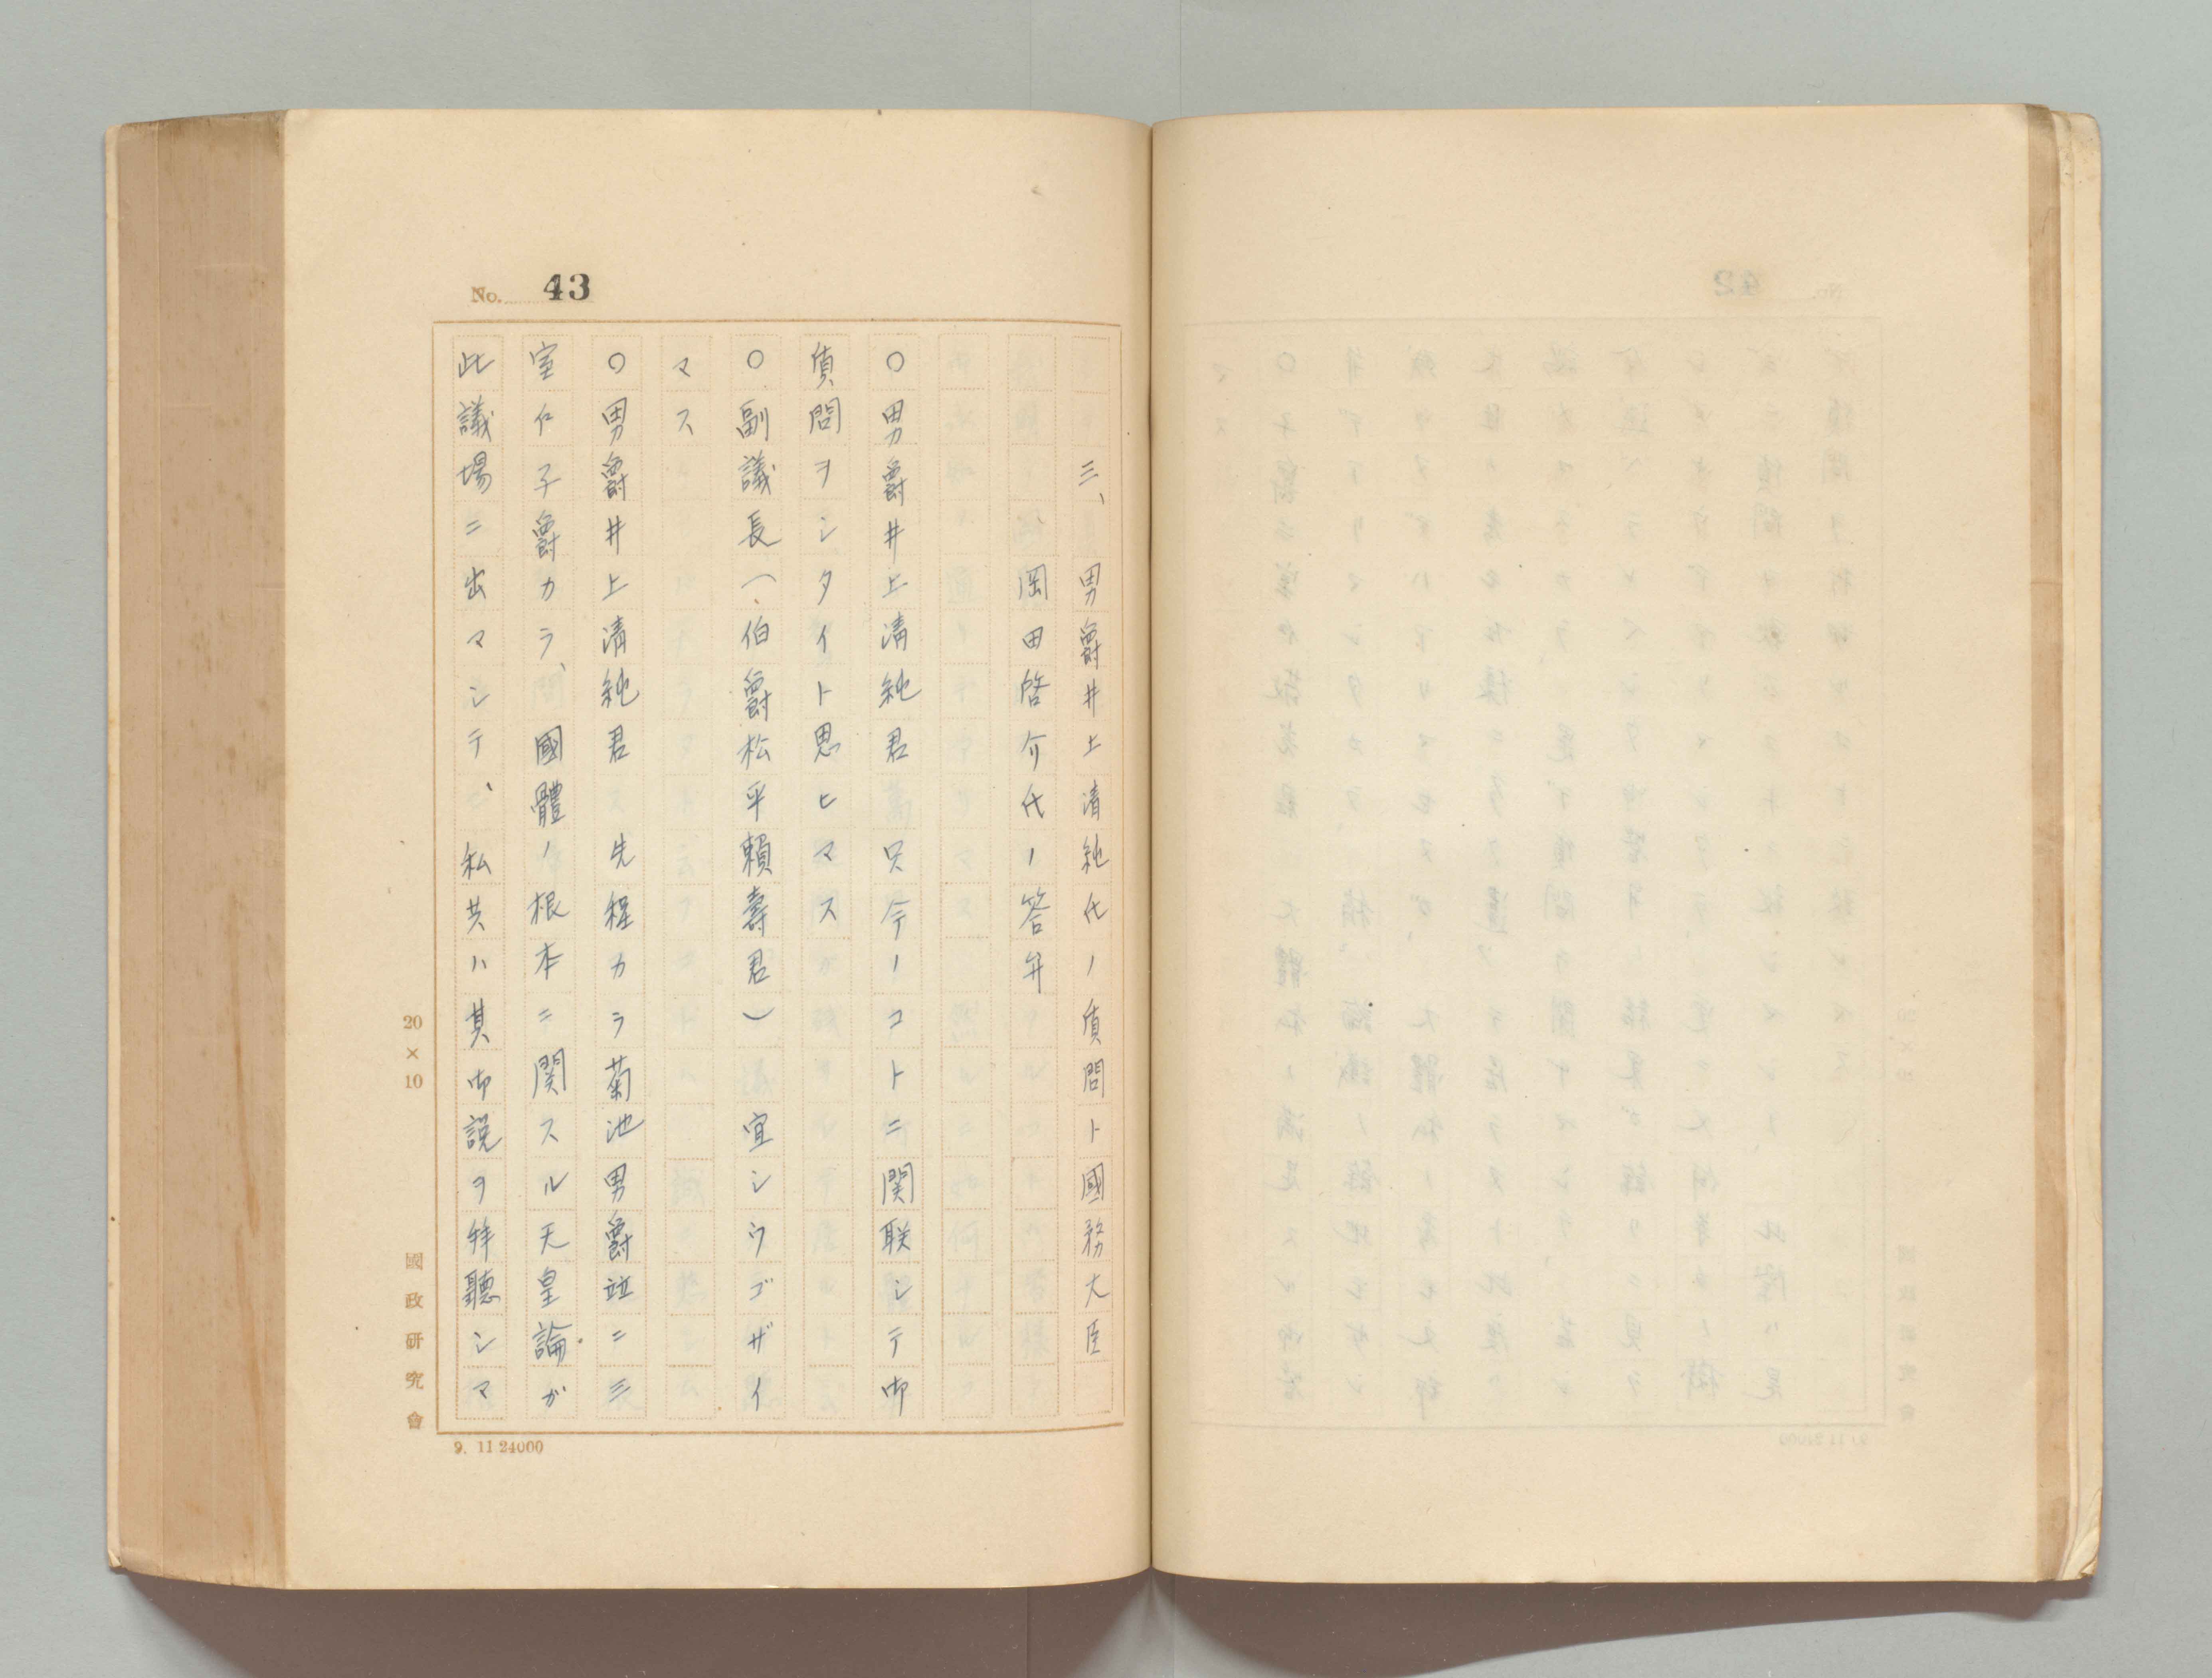 No. 43
三、男爵井上清純氏ノ質問ト國務大臣
岡田啓介氏ノ答弁
○男爵井上清純君　只今ノコトニ関联シテ御
質問ヲシタイト思ヒマス
○副議長(伯爵松平頼壽君)　宜シウゴザイ
マス
○男爵井上清純君　先程カラ菊池男爵竝ニ三
室仁子爵カラ、國體ノ根本ニ関スル天皇論ガ
此議場ニ出マシテ、私共ハ其御説ヲ拝聽シマ
20×10
國政研究會
9. 11 24000